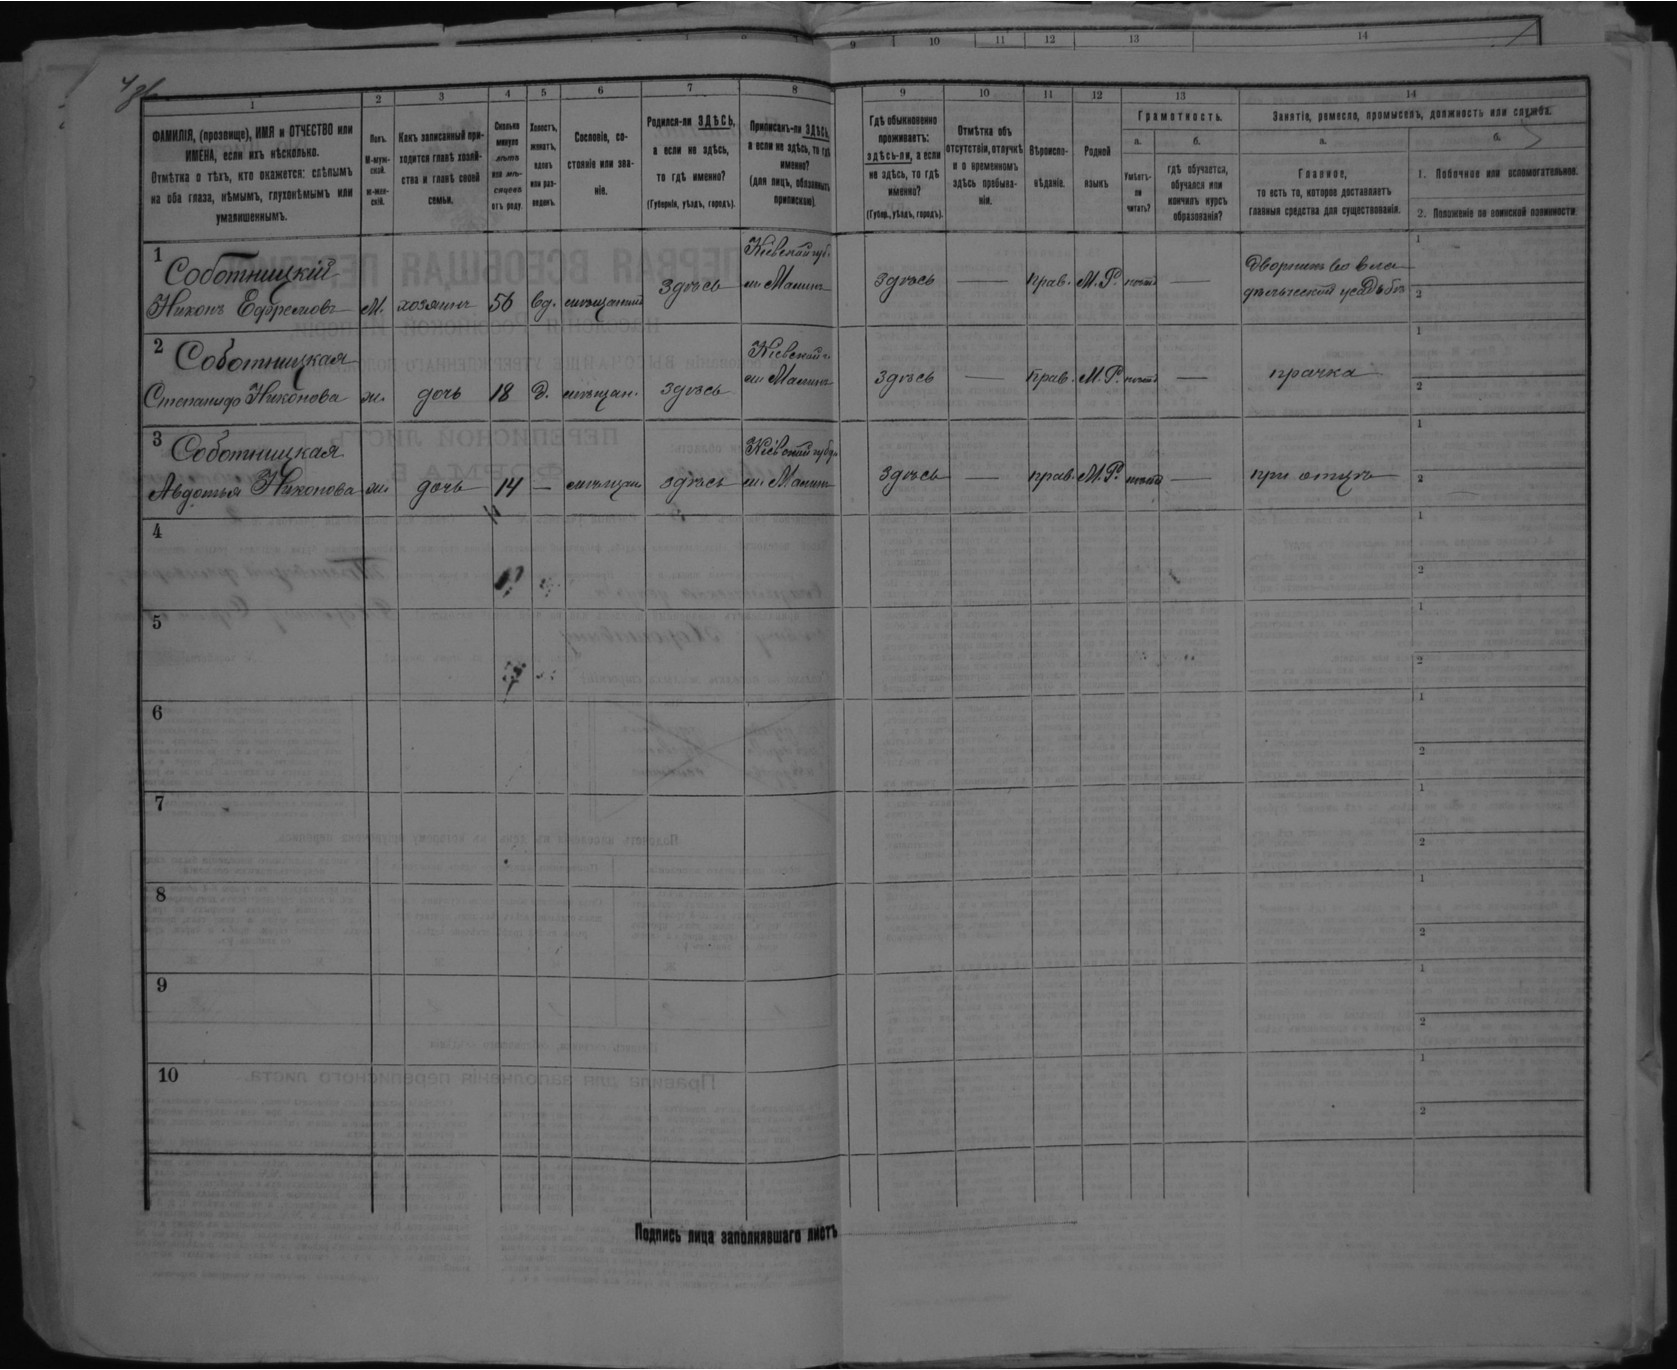 9 10 11 12 13 14
1 2 3 4 5 6 7 8 9 10 11 12 13 14
ФАМИЛІЯ, (прозвище), ИМЯ и ОТЧЕСТВО или
ИМЕНА, если ихъ нѣсколько.
Отмѣтка о тѣхъ, кто окажется: слѣпымъ
на оба глаза, нѣмымъ, глухонѣмымъ или
умалишеннымъ.
Полъ.
М-муж-
ской.
ж-жен-
скій.
Какъ записанный при-
ходится главѣ хозяй-
ства и главѣ своей
семьи.
Сколько
минуло
лѣтъ
или мѣ-
сяцевъ
отъ роду.
Холостъ,
женатъ,
вдовъ
или раз-
веденъ.
Сословіе, со-
стояніе или зва-
ніе.
Родился-ли ЗДѢСЬ,
а если не здѣсь,
то гдѣ именно?
(Губернія, уѣздъ, городъ).
Приписанъ-ли ЗДѢСЬ,
а если не здѣсь, то гдѣ
именно?
(для лицъ, обязанныхъ
припискою).
Гдѣ обыкновенно
проживаетъ:
здѣсь-ли, а если
не здѣсь, то гдѣ
именно?
(Губер., уѣздъ, городъ).
Отмѣтка объ
отсутствіи, отлучкѣ
и о временномъ
здѣсь пребыва-
ніи.
Вѣроиспо-
вѣданіе.
Родной
языкъ
Грамотность.
а.
Умѣетъ-
ли
читать?
б.
гдѣ обучается,
обучался или
кончилъ курсъ
образованія?
Занятіе, ремесло, промыселъ, должность или служба.
а.
Главное,
то есть то, которое доставляетъ
главныя средства для существованія.
б.
1. Побочное или вспомогательное.
2. Положеніе по воинской повинности
1 Соботницкій
Никонъ Ефремовъ М. хозяинъ 56 вд. здѣсь
Кіевской губ.
м. Малинъ
здѣсь — прав. М. Р. —
1
2
2 Соботницкая
Степанида Никонова ж. дочь 18 д. мѣщан. здѣсь
Кіевской г.
м. Малинъ
здѣсь — прав. М. Р. — прачка
1
2
3 Соботницкая
Авдотья Никонова ж. дочь 14 — мѣщан. здѣсь
Кіевской губ.
м. Малинъ
здѣсь — прав. М. Р. — при отцѣ
1
2
4
1
2
5
1
2
6
1
2
7
1
2
8
1
2
9
1
2
10
1
2
Подпись лица заполнявшаго листъ